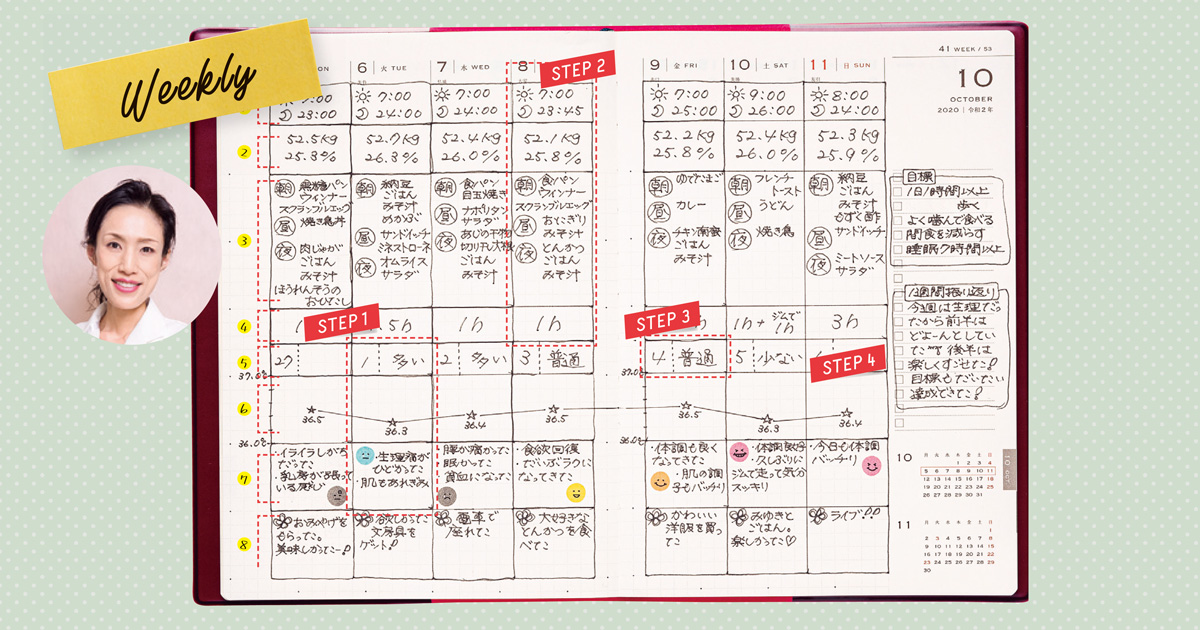 Weekly
ON
6 火 TUE
7 水 WED
8
STEP 2
9 金 FRI
10 土 SAT
11 日 SUN
41 WEEK / 53
10
OCTOBER
2020 | 令和2年
7:00
23:00
7:00
24:00
7:00
24:00
7:00
23:45
7:00
25:00
9:00
26:00
8:00
24:00
2
52.5kg
25.3%
52.7kg
26.3%
52.4kg
26.0%
52.1kg
25.8%
52.2kg
25.8%
52.4kg
26.0%
52.3kg
25.9%
3
朝 無糖パン
ウィンナー
スクランブルエッグ
昼 焼き鳥丼
夜 肉じゃが
ごはん
みそ汁
ほうれんそうの
おひたし
朝 納豆
ごはん
みそ汁
めかぶ
昼 サンドイッチ
ミネストローネ
夜 オムライス
サラダ
朝 食パン
目玉焼き
昼 ナポリタン
サラダ
夜 あじの干物
切り干し大根
ごはん
みそ汁
朝 食パン
ウインナー
スクランブルエッグ
昼 おにぎり
みそ汁
夜 とんかつ
ごはん
みそ汁
朝 ゆでたまご
昼 カレー
夜 チキン南蛮
ごはん
みそ汁
朝 フレンチ
トースト
昼 うどん
夜 焼き鳥
朝 納豆
ごはん
みそ汁
もずく酢
昼 サンドイッチ
夜 ミートソース
サラダ
目標
1日1時間以上
歩く
よく噛んで食べる
間食を減らす
睡眠7時間以上
4
STEP 1
5h
1h
1h
STEP 3
h
1h+ジムで
1h
3h
5
27
1 多い
2 多い
3 普通
4 普通
5 少ない
STEP 4
37.0℃
37.0
6
36.5
36.3
36.4
36.5
36.5
36.3
36.4
36.0℃
36.0℃
1週間振り返り
今週は生理だっ
たから前半は
どよーんとしてい
たが後半は
楽しくすごせた!
目標もだいたい
達成できた!
7
・イライラしがち
だった
・乳房が張って
いる感じ
・生理痛が
ひどかった
・肌もあれぎみ
・腰が痛かった
・眠かった
・貧血になった
・食欲回復
・だいぶラクに
なってきた
・体調も良く
なってきた
・肌の調
子もバッチリ
・体調良好
・久しぶりに
ジムで走って気分
スッキリ
・今日も体調
バッチリ
8
おみやげを
もらった。
美味しかったー!
欲しかった
文房具を
ゲット!
電車で
座れた
大好きな
とんかつを食
べた
かわいい
洋服を買っ
た
みゆきと
ごはん。
楽しかった♡
ライブ!!
10
月 火 水 木 金 土 日
1 2 3 4
5 6 7 8 9 10 11
12 13 14 15 16 17 18
19 20 21 22 23 24 25
26 27 28 29 30 31
10 OCT
11
月 火 水 木 金 土 日
1
2 3 4 5 6 7 8
9 10 11 12 13 14 15
16 17 18 19 20 21 22
23 24 25 26 27 28 29
30